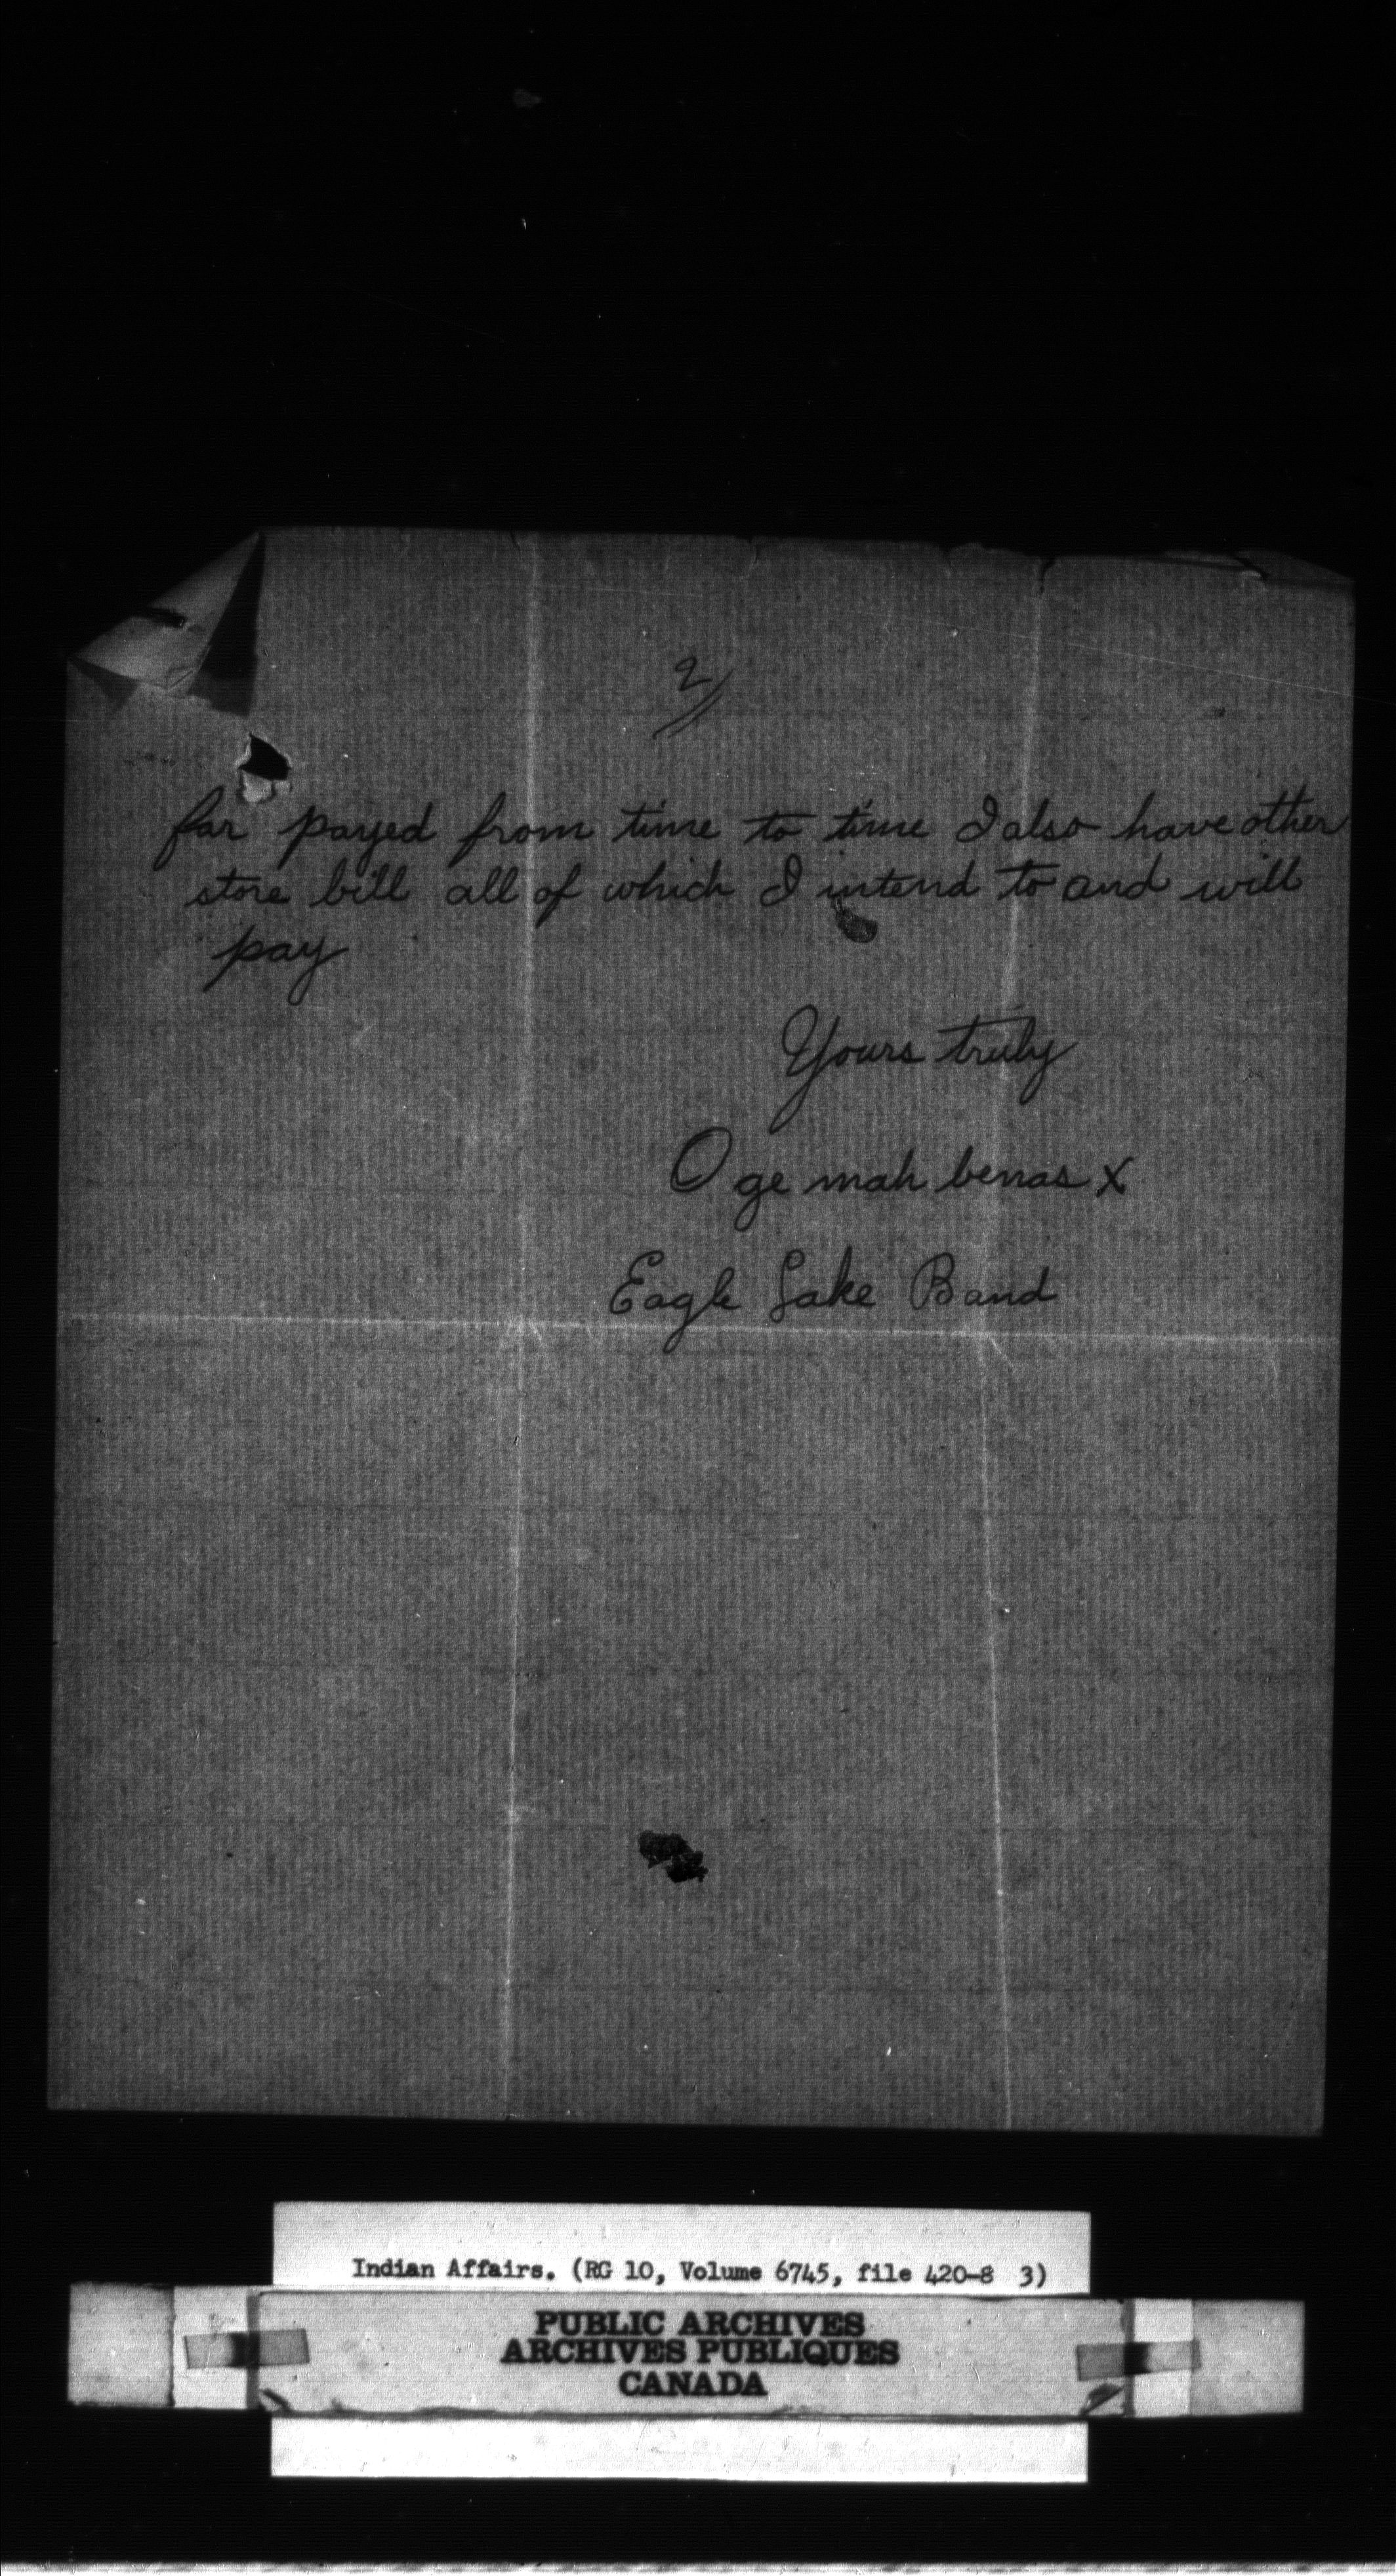 2
far payed from time to time I also have other
store bill all of which I intend to and will
pay
Yours truly
O ge mah benas X
Eagle Lake Band
Indian Affairs. (RG 10, Volume 6745, file 420-8 3)
PUBLIC ARCHIVES
ARCHIVES PUBLIQUES
CANADA